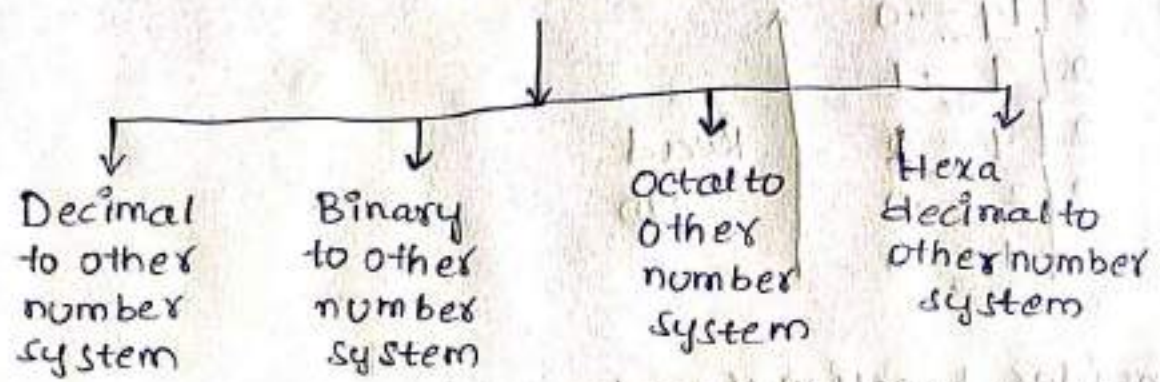 Decimal
to other
number
system
Binary
to other
number
system
Octal to
other
number
system
Hexa
decimal to
other number
system